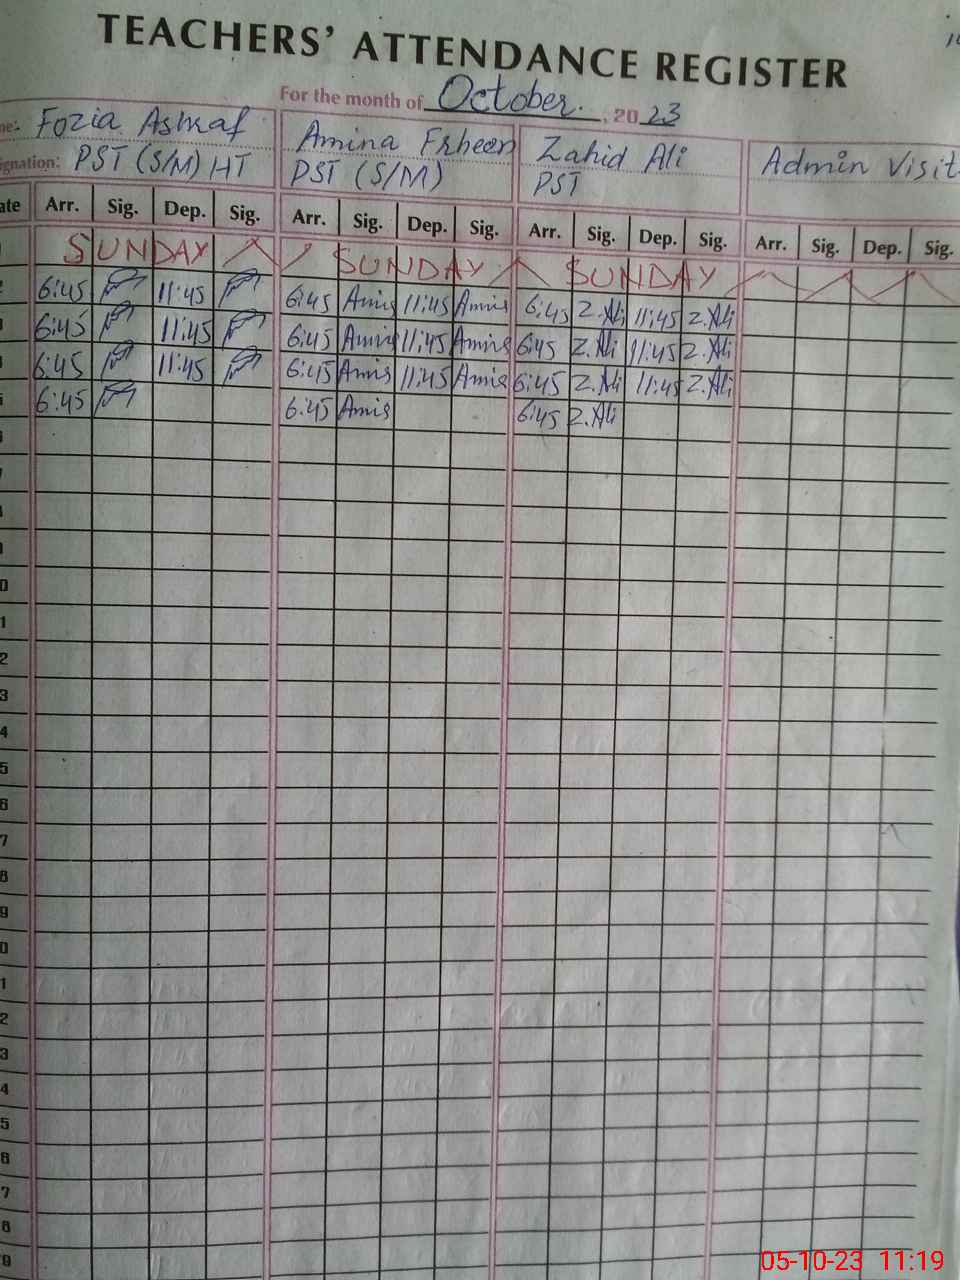 TEACHERS' ATTENDANCE REGISTER
For the month of October. , 2023
me: Fozia Ashraf Amina Frheen Zahid Ali Admin Visit
ignation: PST (S/M) HT PST (S/M) PST
ate Arr. Sig. Dep. Sig. Arr. Sig. Dep. Sig. Arr. Sig. Dep. Sig. Arr. Sig. Dep. Sig.
SUNDAY SUNDAY SUNDAY
2 6:45 11:45 6:45 Amis 11:45 Amis 6:45 Z.Ali 11:45 Z.Ali
3 6:45 11:45 6:45 Amis 11:45 Amis 6:45 Z.Ali 11:45 Z.Ali
6:45 11:45 6:45 Amis 11:45 Amis 6:45 Z.Ali 11:45 Z.Ali
6:45 6:45 Amis 6:45 Z.Ali
0
1
2
3
4
5
6
7
8
9
0
1
2
3
4
5
6
7
8
9
05-10-23 11:19